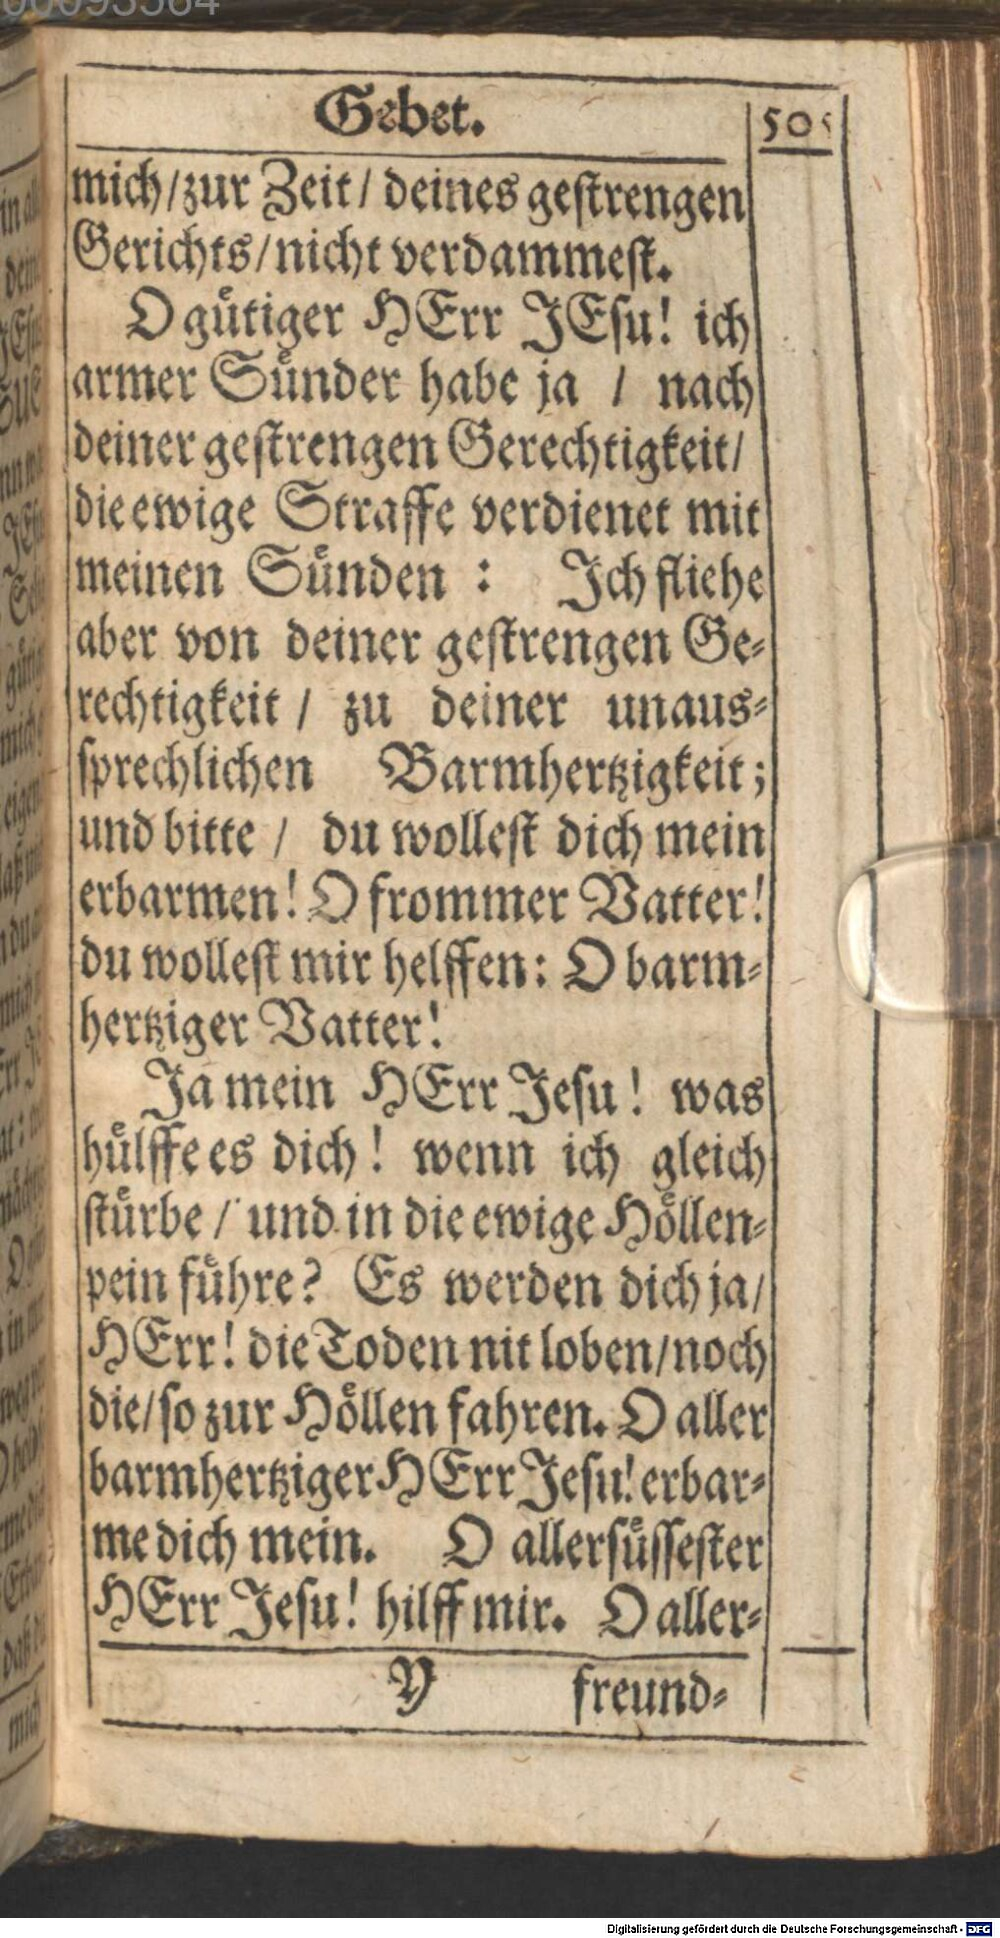 Gebet.
505
mich/zur Zeit/ deines gestrengen
Gerichts/nicht verdammest.
O gütiger HErr JEsu! ich
armer Sünder habe ja / nach
deiner gestrengen Gerechtigkeit/
die ewige Straffe verdienet mit
meinen Sünden : Ich fliehe
aber von deiner gestrengen Ge-
rechtigkeit / zu deiner unaus-
sprechlichen Barmhertzigkeit;
und bitte / du wollest dich mein
erbarmen! O frommer Vatter!
du wollest mir helffen: O barm-
hertziger Vatter!
Ja mein HErr Jesu! was
hülffe es dich! wenn ich gleich
stürbe / und in die ewige Höllen-
pein führe? Es werden dich ja/
HErr! die Toden nit loben/noch
die/so zur Höllen fahren. O aller
barmhertziger HErr Jesu! erbar-
me dich mein. O allersüssester
HErr Jesu! hilff mir. O aller-
Y freund-
Digitalisierung gefördert durch die Deutsche Forschungsgemeinschaft - DFG